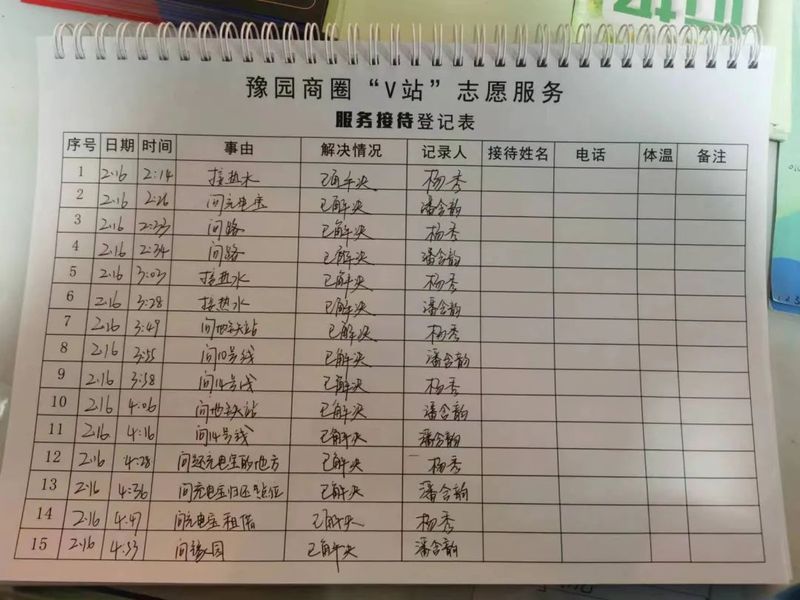 豫园商圈“V站”志愿服务
服务接待登记表
序号 日期 时间 事由 解决情况 记录人 接待姓名 电话 体温 备注
1 2.16 2:14 接热水 已解决 杨秀
2 2.16 2:26 问充电宝 已解决 潘含韵
3 2.16 2:33 问路 已解决 杨秀
4 2.16 2:34 问路 已解决 潘含韵
5 2.16 3:03 接热水 已解决 杨秀
6 2.16 3:28 接热水 已解决 潘含韵
7 2.16 3:49 问地铁站 已解决 杨秀
8 2.16 3:55 问10号线 已解决 潘含韵
9 2.16 3:58 问14号线 已解决 杨秀
10 2.16 4:06 问地铁站 已解决 潘含韵
11 2.16 4:16 问14号线 已解决 潘含韵
12 2.16 4:28 问还充电宝的地方 已解决 杨秀
13 2.16 4:36 问充电宝归还点位 已解决 潘含韵
14 2.16 4:47 问充电宝租借 已解决 杨秀
15 2.16 4:53 问豫园 已解决 潘含韵